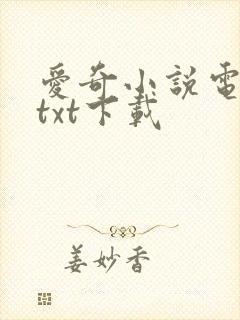 愛奇小説電
txt下載
姜妙香